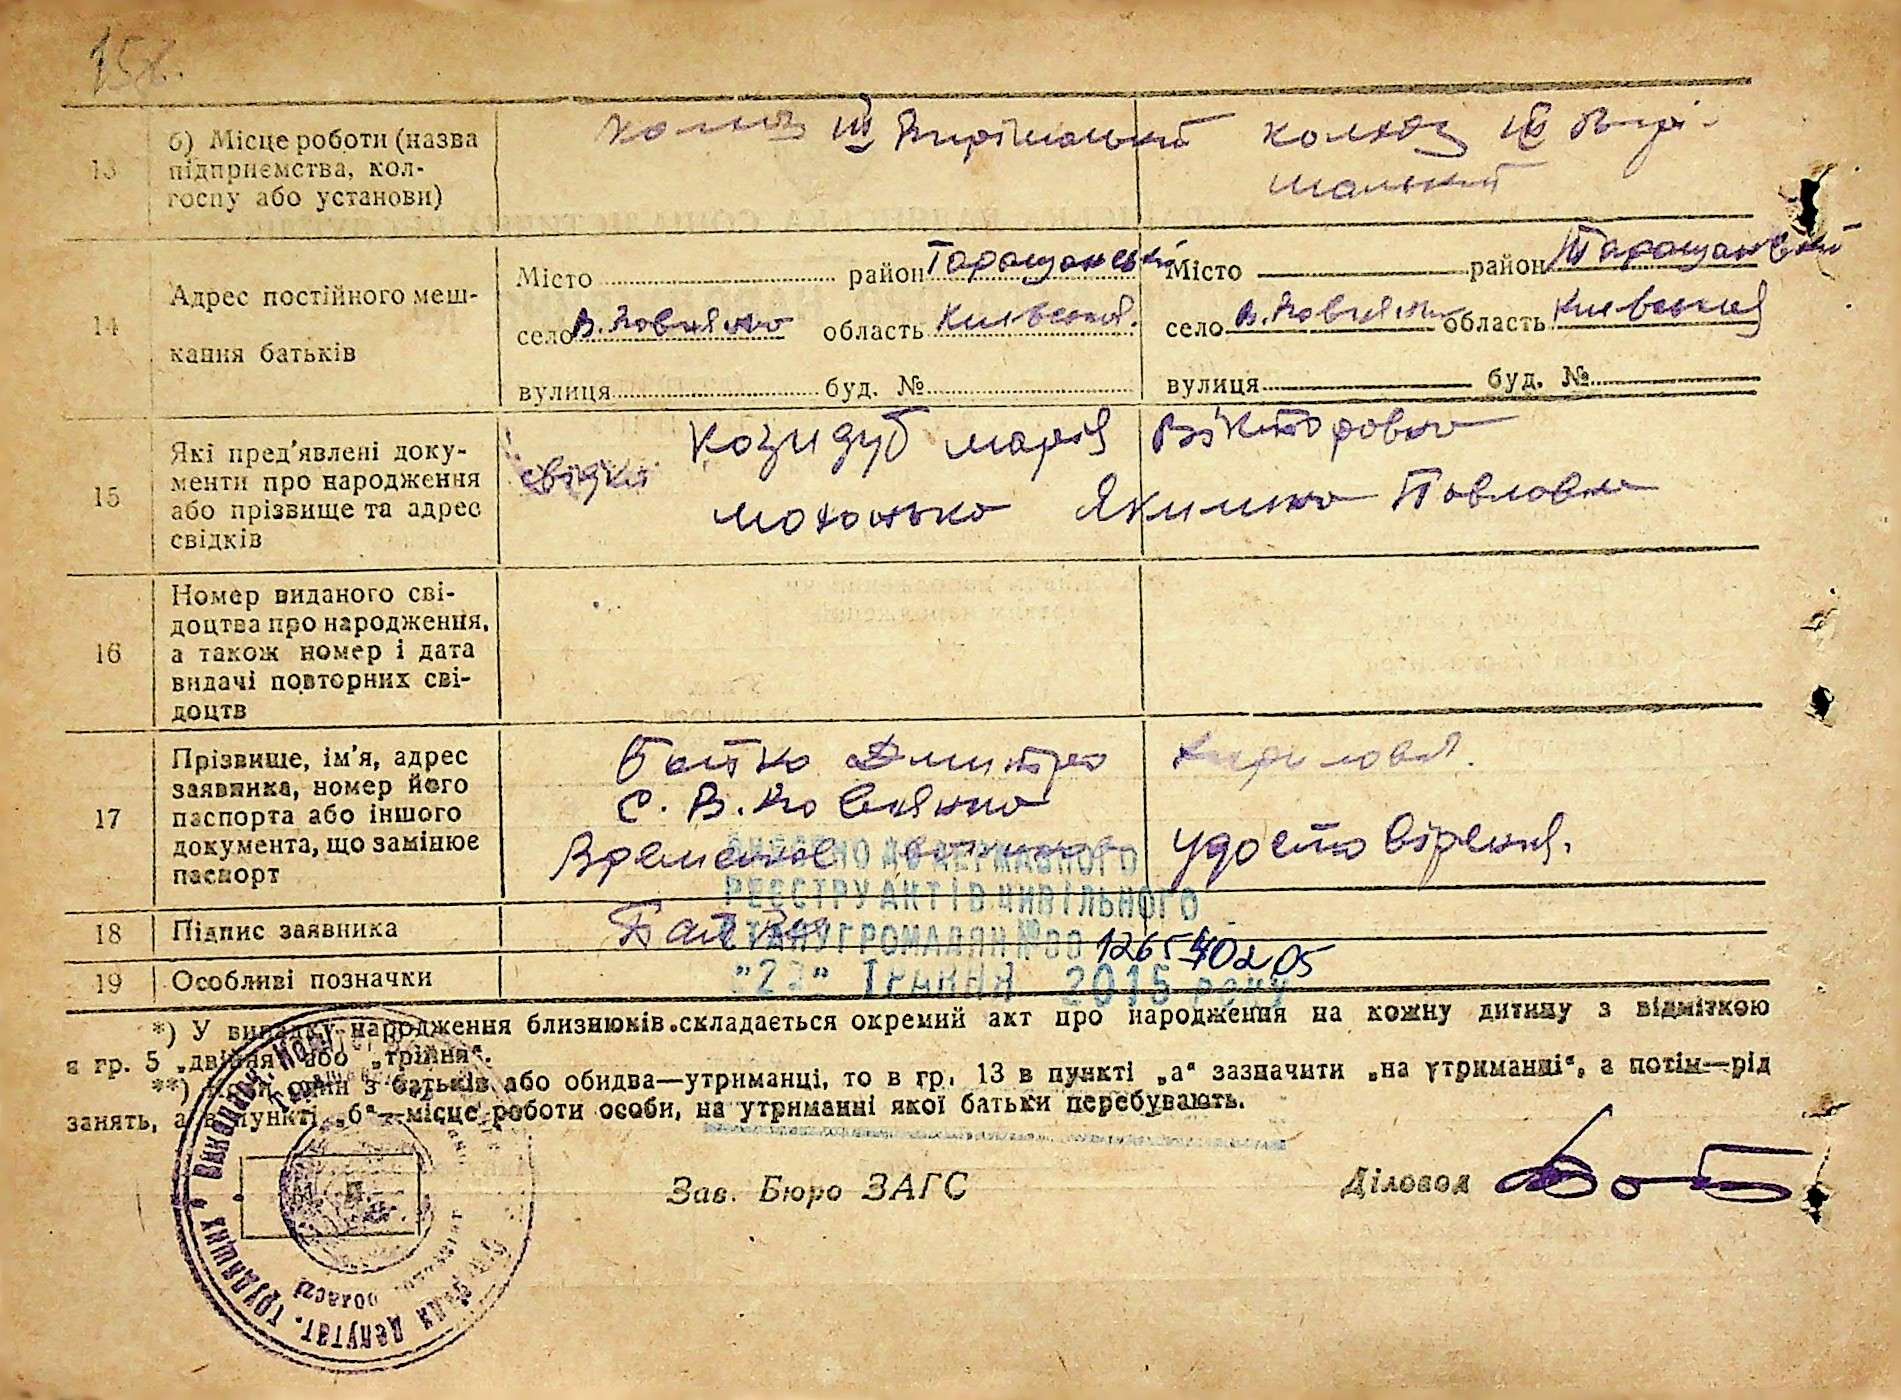 15
13 б) Місце роботи (назва підприємства, колгоспу або установи)
колгоз III Вирішальний
колхоз III Вирішальний
14 Адрес постійного мешкання батьків
Місто район Таращанський
село В. Ковнянко область Київська.
вулиця буд. №
Місто район Таращанський
село В. область Київська
вулиця буд. №
15 Які пред'явлені документи про народження або прізвище та адрес свідків
свідки Козидуб Марія Вікторовна
Якимина Павловна
16 Номер виданого свідоцтва про народження, а також номер і дата видачі повторних свідоцтв
17 Прізвище, ім'я, адрес заявника, номер його паспорта або іншого документа, що замінює паспорт
Батко Дмитро Кирилович.
с. В.
Временное удостовірения.
18 Підпис заявника
19 Особливі позначки
ВНЕСЕНО ДО ДЕРЖАВНОГО
РЕЄСТРУ АКТІВ ЦИВІЛЬНОГО
СТАНУ ГРОМАДЯН № 00
ТРАВНЯ 2015 року
*) У випадку народження близнюків складається окремий акт про народження на кожну дитину з відміткою
в гр. 5 „двійня" або „трійня".
**) Коли один з батьків або обидва—утриманці, то в гр. 13 в пункті „а" зазначити „на утриманні", а потім—рід
занять, а в пункті „б"—місце роботи особи, на утриманні якої батьки перебувають.
М. П.
Зав. Бюро ЗАГС
Діловод